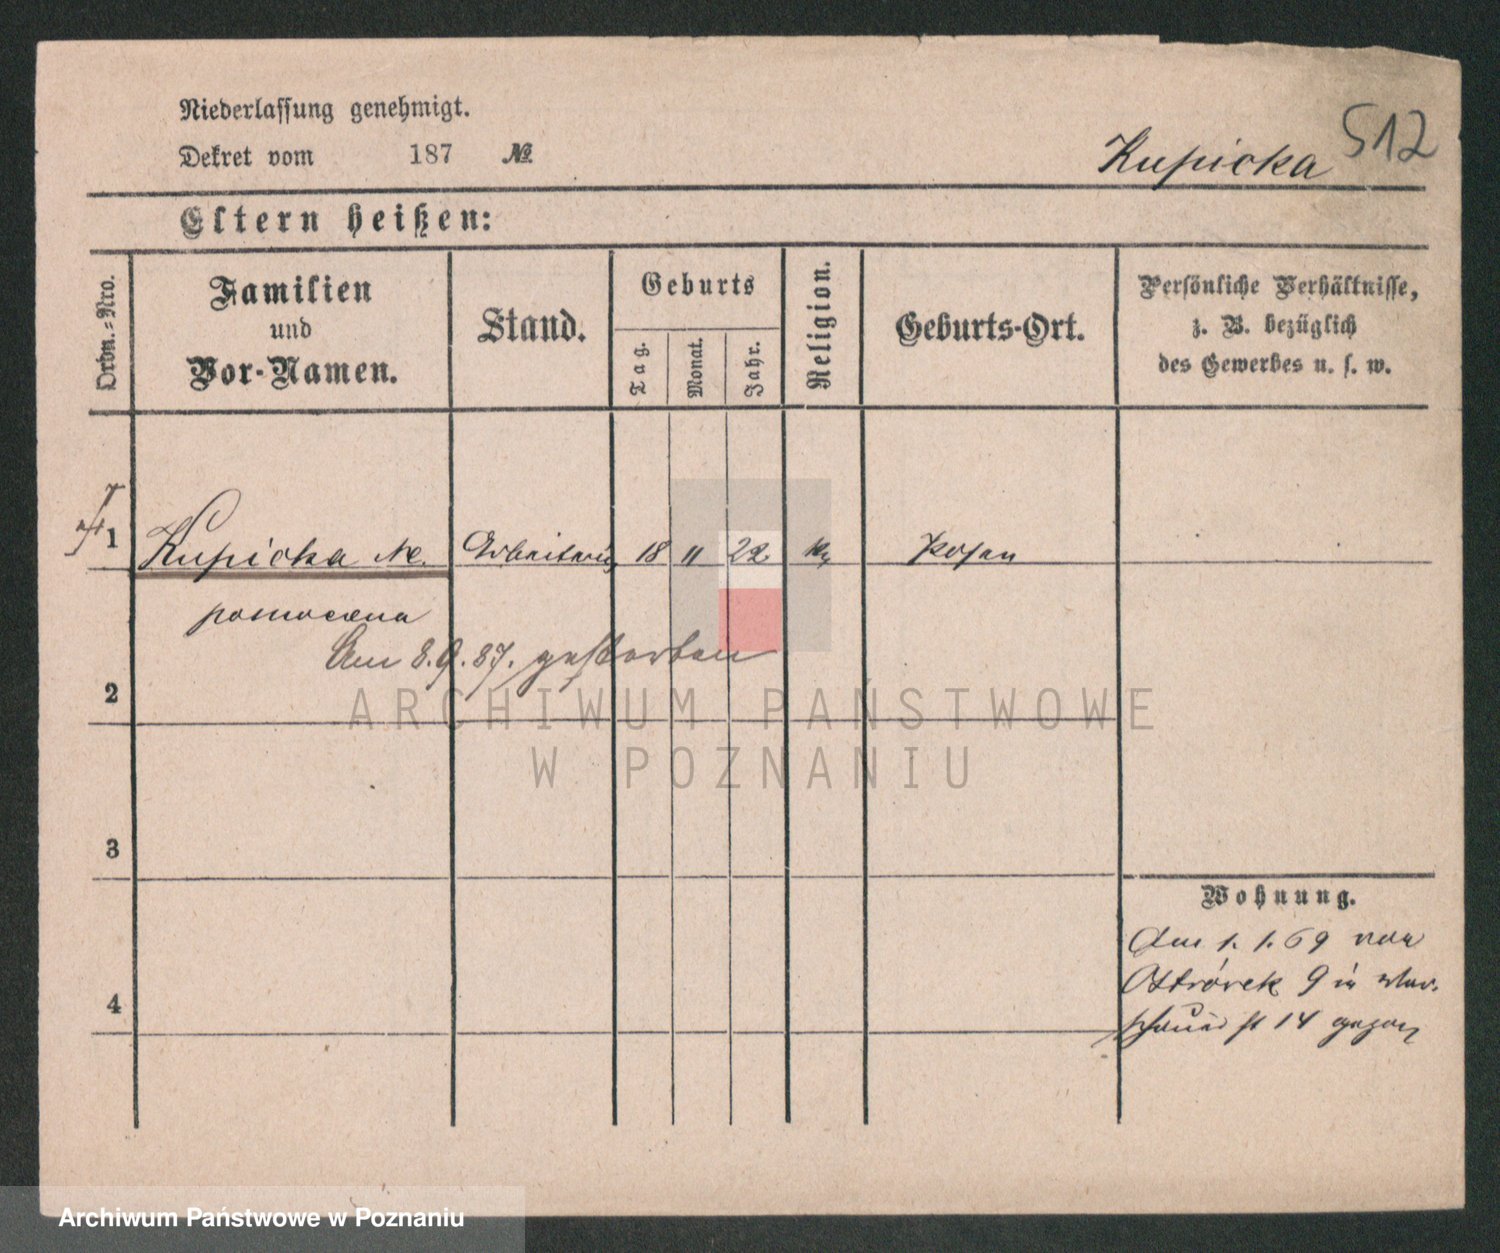 Niederlassung genehmigt.
Dekret vom 187 №
Kupicka 512
Eltern heißen:
Ordn.-Nro.
Familien
und
Vor-Namen.
Stand.
Geburts
Tag.
Monat.
Jahr.
Religion.
Geburts-Ort.
Persönliche Verhältnisse,
z. B. bezüglich
des Gewerbes u. s. w.
1 Kupicka M. Arbeiterin 18 11 22 k. Posen
Am 8.9.87. gestorben
2
ARCHIWUM PAŃSTWOWE
W POZNANIU
3
Wohnung.
Am 1. 1. 69 von
Ostrówek 9 in War-
schauer st 14 gezog
4
Archiwum Państwowe w Poznaniu